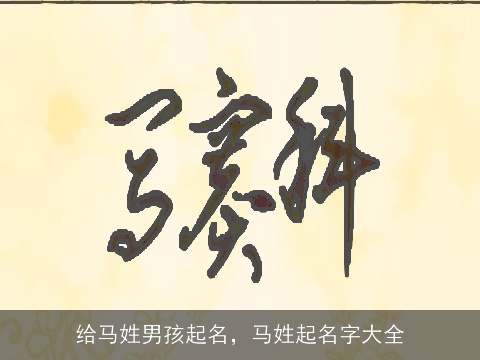 马赛科
给马姓男孩起名，马姓起名字大全